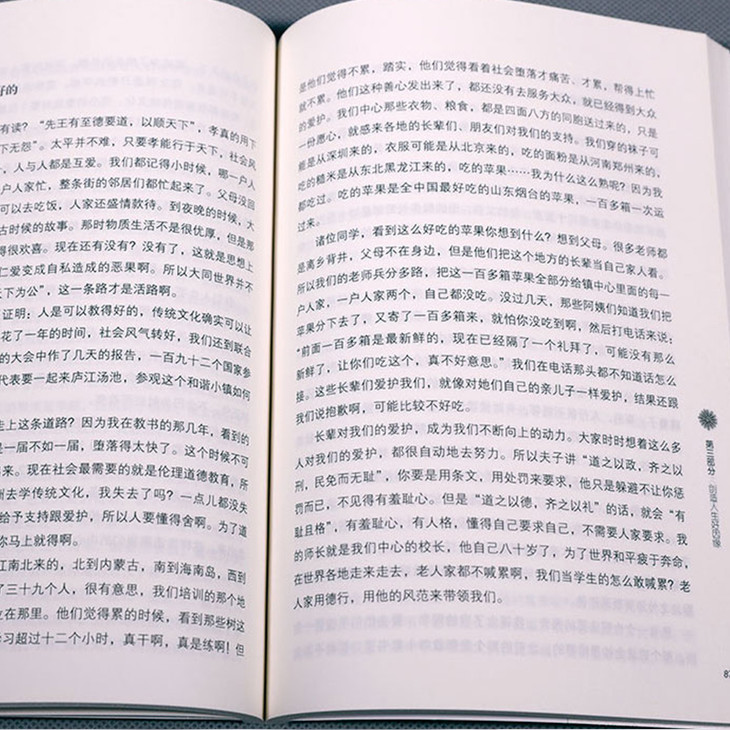 好的
有读?“先王有至德要道,以顺天下”,孝真的用下
下无怨”。太平并不难,只要孝能行于天下,社会风
,人与人都是互爱。我们都记得小时候,哪一户人
户人家忙,整条街的邻居们都忙起来了。父母没回
可以去吃饭,人家还盛情款待。到夜晚的时候,大
古时候的故事。那时物质生活不是很优厚,但是那
得很欢喜。现在还有没有?没有了,这就是思想上
仁爱变成自私造成的恶果啊。所以大同世界并不
天下为公”,这一条路才是活路啊。
证明:人是可以教得好的,传统文化确实可以让
花了一年的时间,社会风气转好,我们还到联合
的大会中作了几天的报告,一百九十二个国家参
代表要一起来庐江汤池,参观这个和谐小镇如何
走上这条道路?因为我在教书的那几年,看到的
是一届不如一届,堕落得太快了。这个时候不可
来。现在社会最需要的就是伦理道德教育,所
州去学传统文化,我失去了吗?一点儿都没失
给予支持跟爱护,所以人要懂得舍啊。为了道
你马上就得啊。
江南北来的,北到内蒙古,南到海南岛,西到
了三十九个人,很有意思,我们培训的那个地
立在那里。他们觉得累的时候,看到那些树这
学习超过十二个小时,真干啊,真是练啊!但
是他们觉得不累,踏实,他们觉得看着社会堕落才痛苦、才累,帮得上忙
就不累。他们这种善心发出来了,都还没有去服务大众,就已经得到大众
的爱护。我们中心那些衣物、粮食,都是四面八方的同胞送过来的,只是
一份愿心,就感来各地的长辈们、朋友们对我们的支持。我们穿的袜子可
能是从深圳来的,衣服可能是从北京来的,吃的面粉是从河南郑州来的,
吃的糙米是从东北黑龙江来的,吃的苹果……我为什么这么熟呢?因为我
都吃过。吃的苹果是全中国最好吃的山东烟台的苹果,一百多箱一次运
过来。
诸位同学,看到这么好吃的苹果你想到什么?想到父母。很多老师都
是离乡背井,父母不在身边,但是他们把这个地方的长辈当自己家人看。
所以我们的老师兵分多路,把这一百多箱苹果全部分给镇中心里面的每一
户人家,一户人家两个,自己都没吃。没过几天,那些阿姨们知道我们把
苹果分下去了,又寄了一百多箱来,就怕你没吃到啊,然后打电话来说:
“前面一百多箱是最新鲜的,现在已经隔了一个礼拜了,可能没有那么
新鲜了,让你们吃这个,真不好意思。”我们在电话那头都不知道话怎么
接。这些长辈们爱护我们,就像对她们自己的亲儿子一样爱护,结果还跟
我们说抱歉啊,可能比较不好吃。
长辈对我们的爱护,成为我们不断向上的动力。大家时时想着这么多
人对我们的爱护,都很自动地去努力。所以夫子讲“道之以政,齐之以
刑,民免而无耻”,你要是用条文,用处罚来要求,他只是躲避不让你惩
罚而已,不见得有羞耻心。但是“道之以德,齐之以礼”的话,就会“有
耻且格”,有羞耻心,有人格,懂得自己要求自己,不需要人家要求。我
的师长就是我们中心的校长,他自己八十岁了,为了世界和平疲于奔命,
在世界各地走来走去,老人家都不喊累啊,我们当学生的怎么敢喊累?老
人家用德行,用他的风范来带领我们。
第三部分